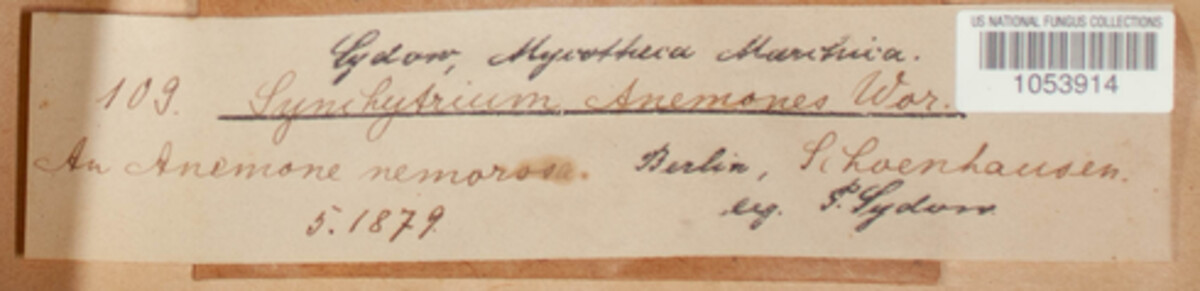 Sydow, Mycotheca Marchica.
109. Synchytrium Anemones Wor.
An Anemone nemorosa. Berlin, Schoenhausen.
5.1879. leg. P. Sydow
US NATIONAL FUNGUS COLLECTIONS
1053914